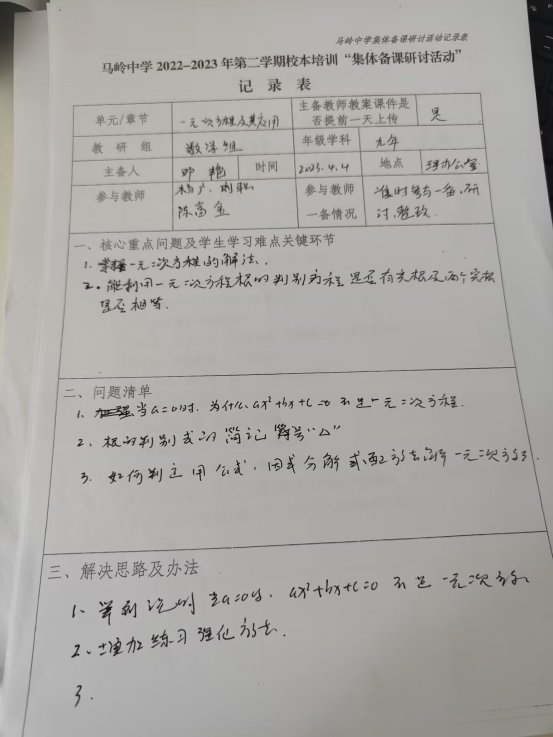 马岭中学集体备课研讨活动记录表
马岭中学 2022-2023 年第二学期校本培训“集体备课研讨活动”
记 录 表
单元/章节 一元二次方程及其应用 主备教师教案课件是否提前一天上传 是
教 研 组 数学组 年级学科 九年
主备人 邓艳 时间 2023.4.4 地点 理办公室
参与教师 刘 陈高金 参与教师一备情况 准时参与一备,研讨,整改.
一、核心重点问题及学生学习难点关键环节
1. 掌握一元二次方程的解法.
2. 能利用一元二次方程根的判别方程是否有实根及两个实根
是否相等.
二、问题清单
1. 当a=0时, 为什么ax²+bx+c=0不是一元二次方程.
2、根的判别式的简记符号“△”
3. 如何判定用公式,因式分解或配方法解一元二次方程.
三、解决思路及办法
1、举例说明当a=0时、ax²+bx+c=0不是一元二次方程
2、增加练习强化方法.
3.